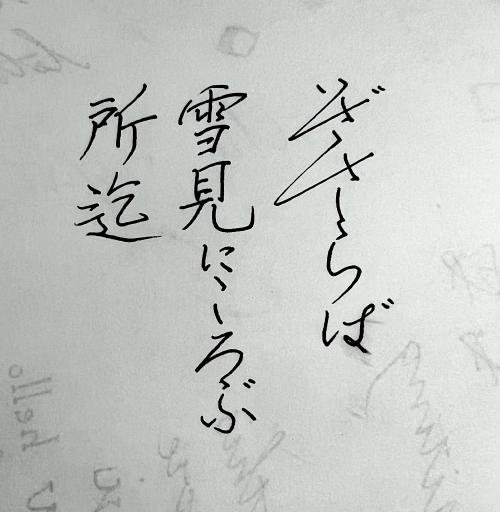 いざさらば
雪見にころぶ
所迄
Hello